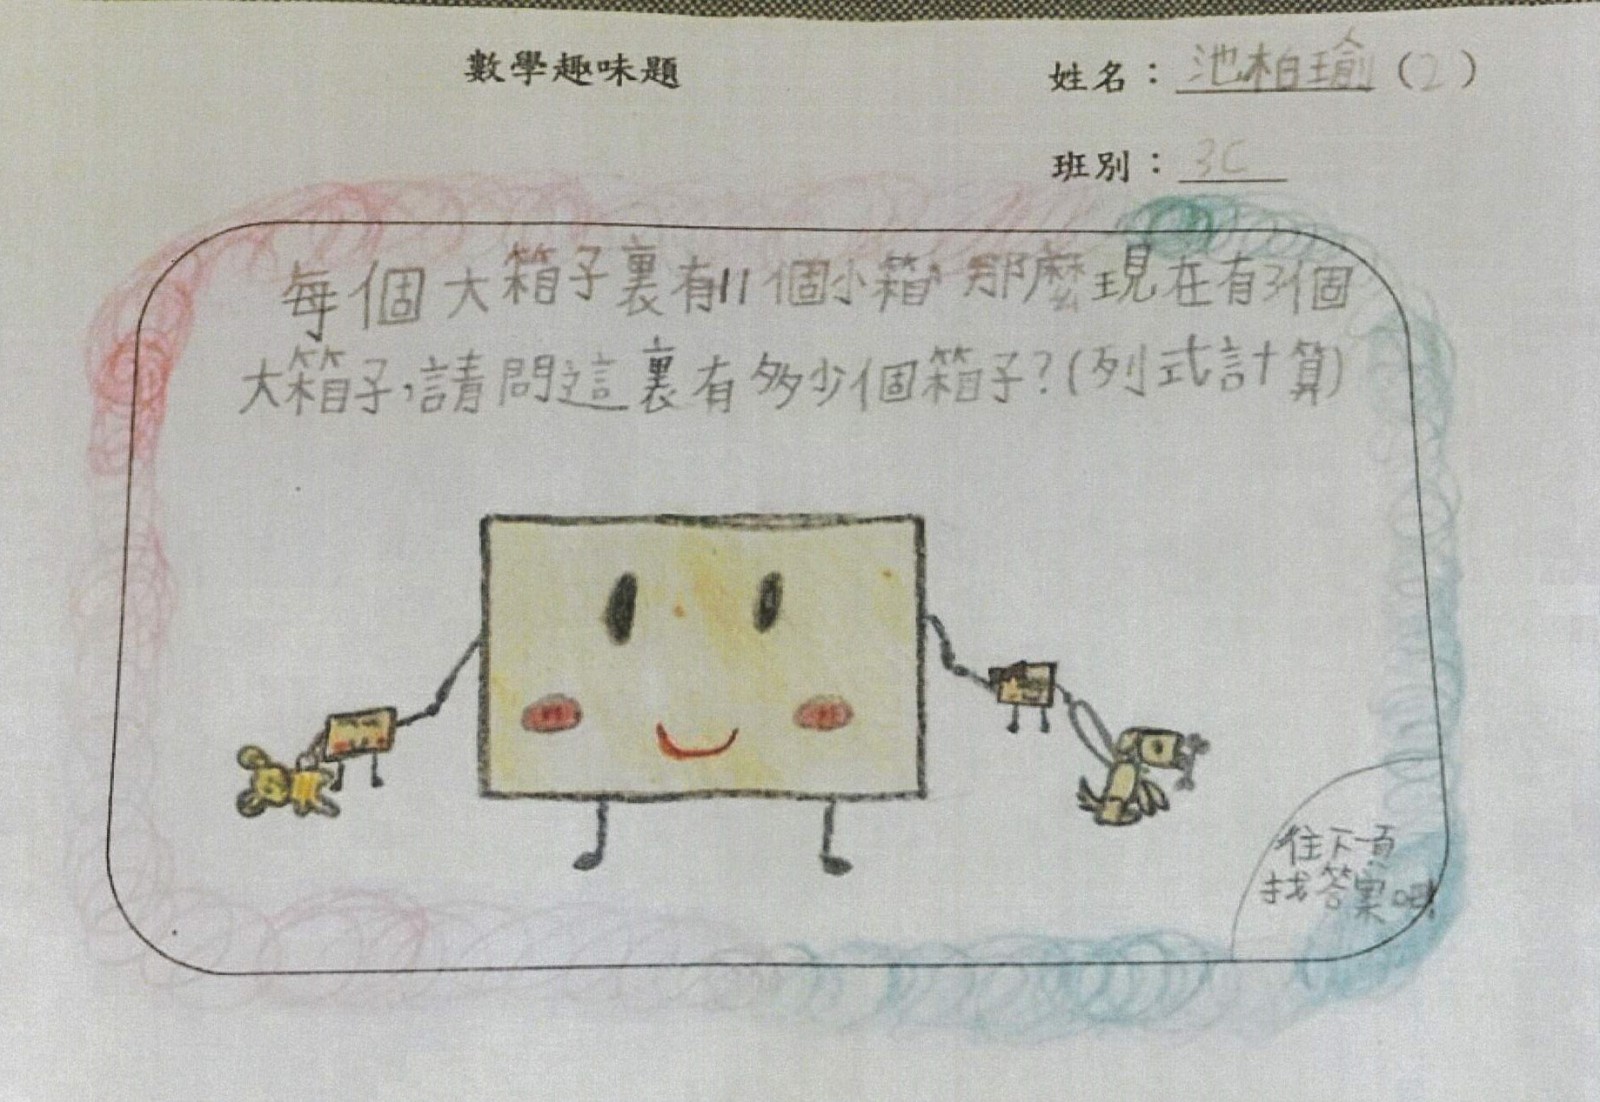 數學趣味題
姓名：池柏瑜（2）
班別：3C
每個大箱子裏有11個小箱，那麼現在有3個
大箱子，請問這裏有多少個箱子？（列式計算）
往下頁
找答案吧！